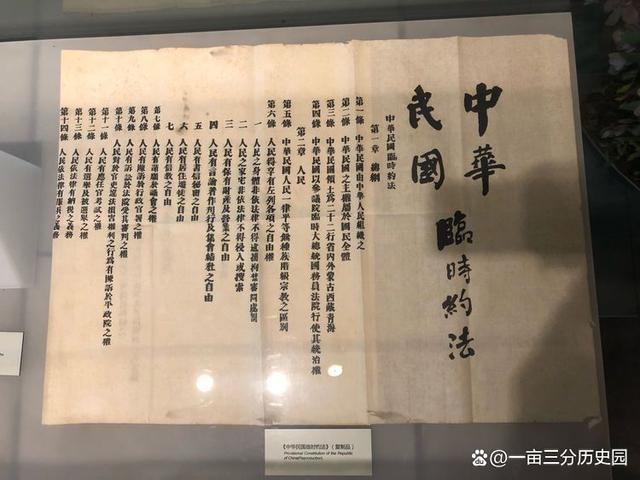 中華
民國
臨時約法
中華民國臨時約法
第一章 總綱
第一條 中華民國由中華人民組織之
第二條 中華民國之主權屬於國民全體
第三條 中華民國領土爲二十二行省內外蒙古西藏靑海
第四條 中華民國以參議院臨時大總統國務員法院行使其統治權
第二章 人民
第五條 中華民國人民一律平等無種族階級宗敎之區別
第六條 人民得享有左列各項之自由
一 人民之身體非依法律不得逮捕拘禁審問處罰
二 人民之家宅非依法律不得侵入或搜索
三 人民有保有財產及營業之自由
四 人民有言論著作刊行及集會結社之自由
五 人民有書信秘密之自由
六 人民有居住遷徙之自由
七 人民有信敎之自由
第七條 人民有請願於議會之權
第八條 人民有陳訴於行政官署之權
第九條 人民有訴訟於法院受其審判之權
第十條 人民對於官吏違法損害權利之行爲有陳訴於平政院之權
第十一條 人民有應任官考試之權
第十二條 人民有選舉及被選舉之權
第十三條 人民依法律有納稅之義務
第十四條 人民依法律有服兵之義務
《中华民国临时约法》（复制品）
Provisional Constitution of the Republic
of China(Reproduction)
百家号@一亩三分历史园